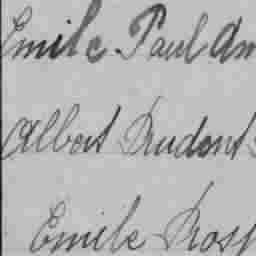 Emile Paul Am
Albert Prudent
Emile Prosp